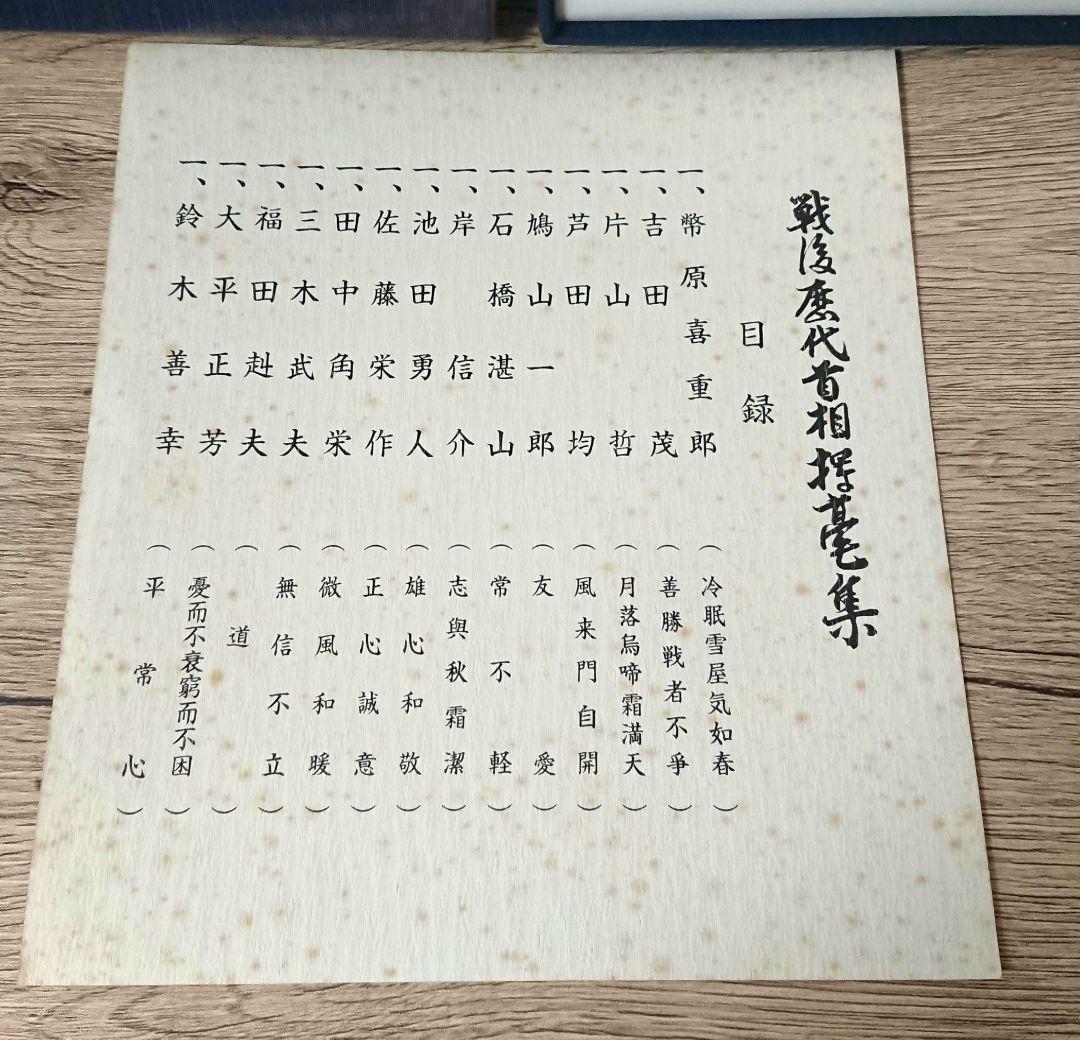 戦後歴代首相揮毫集
目録
一、幣原喜重郎（冷眠雪屋気如春）
一、吉田茂（善勝戦者不爭）
一、片山哲（月落烏啼霜満天）
一、芦田均（風来門自開）
一、鳩山一郎（友愛）
一、石橋湛山（常不軽）
一、岸信介（志與秋霜潔）
一、池田勇人（雄心和敬）
一、佐藤栄作（正心誠意）
一、田中角栄（微風和暖）
一、三木武夫（無信不立）
一、福田赳夫（道）
一、大平正芳（憂而不衰窮而不困）
一、鈴木善幸（平常心）